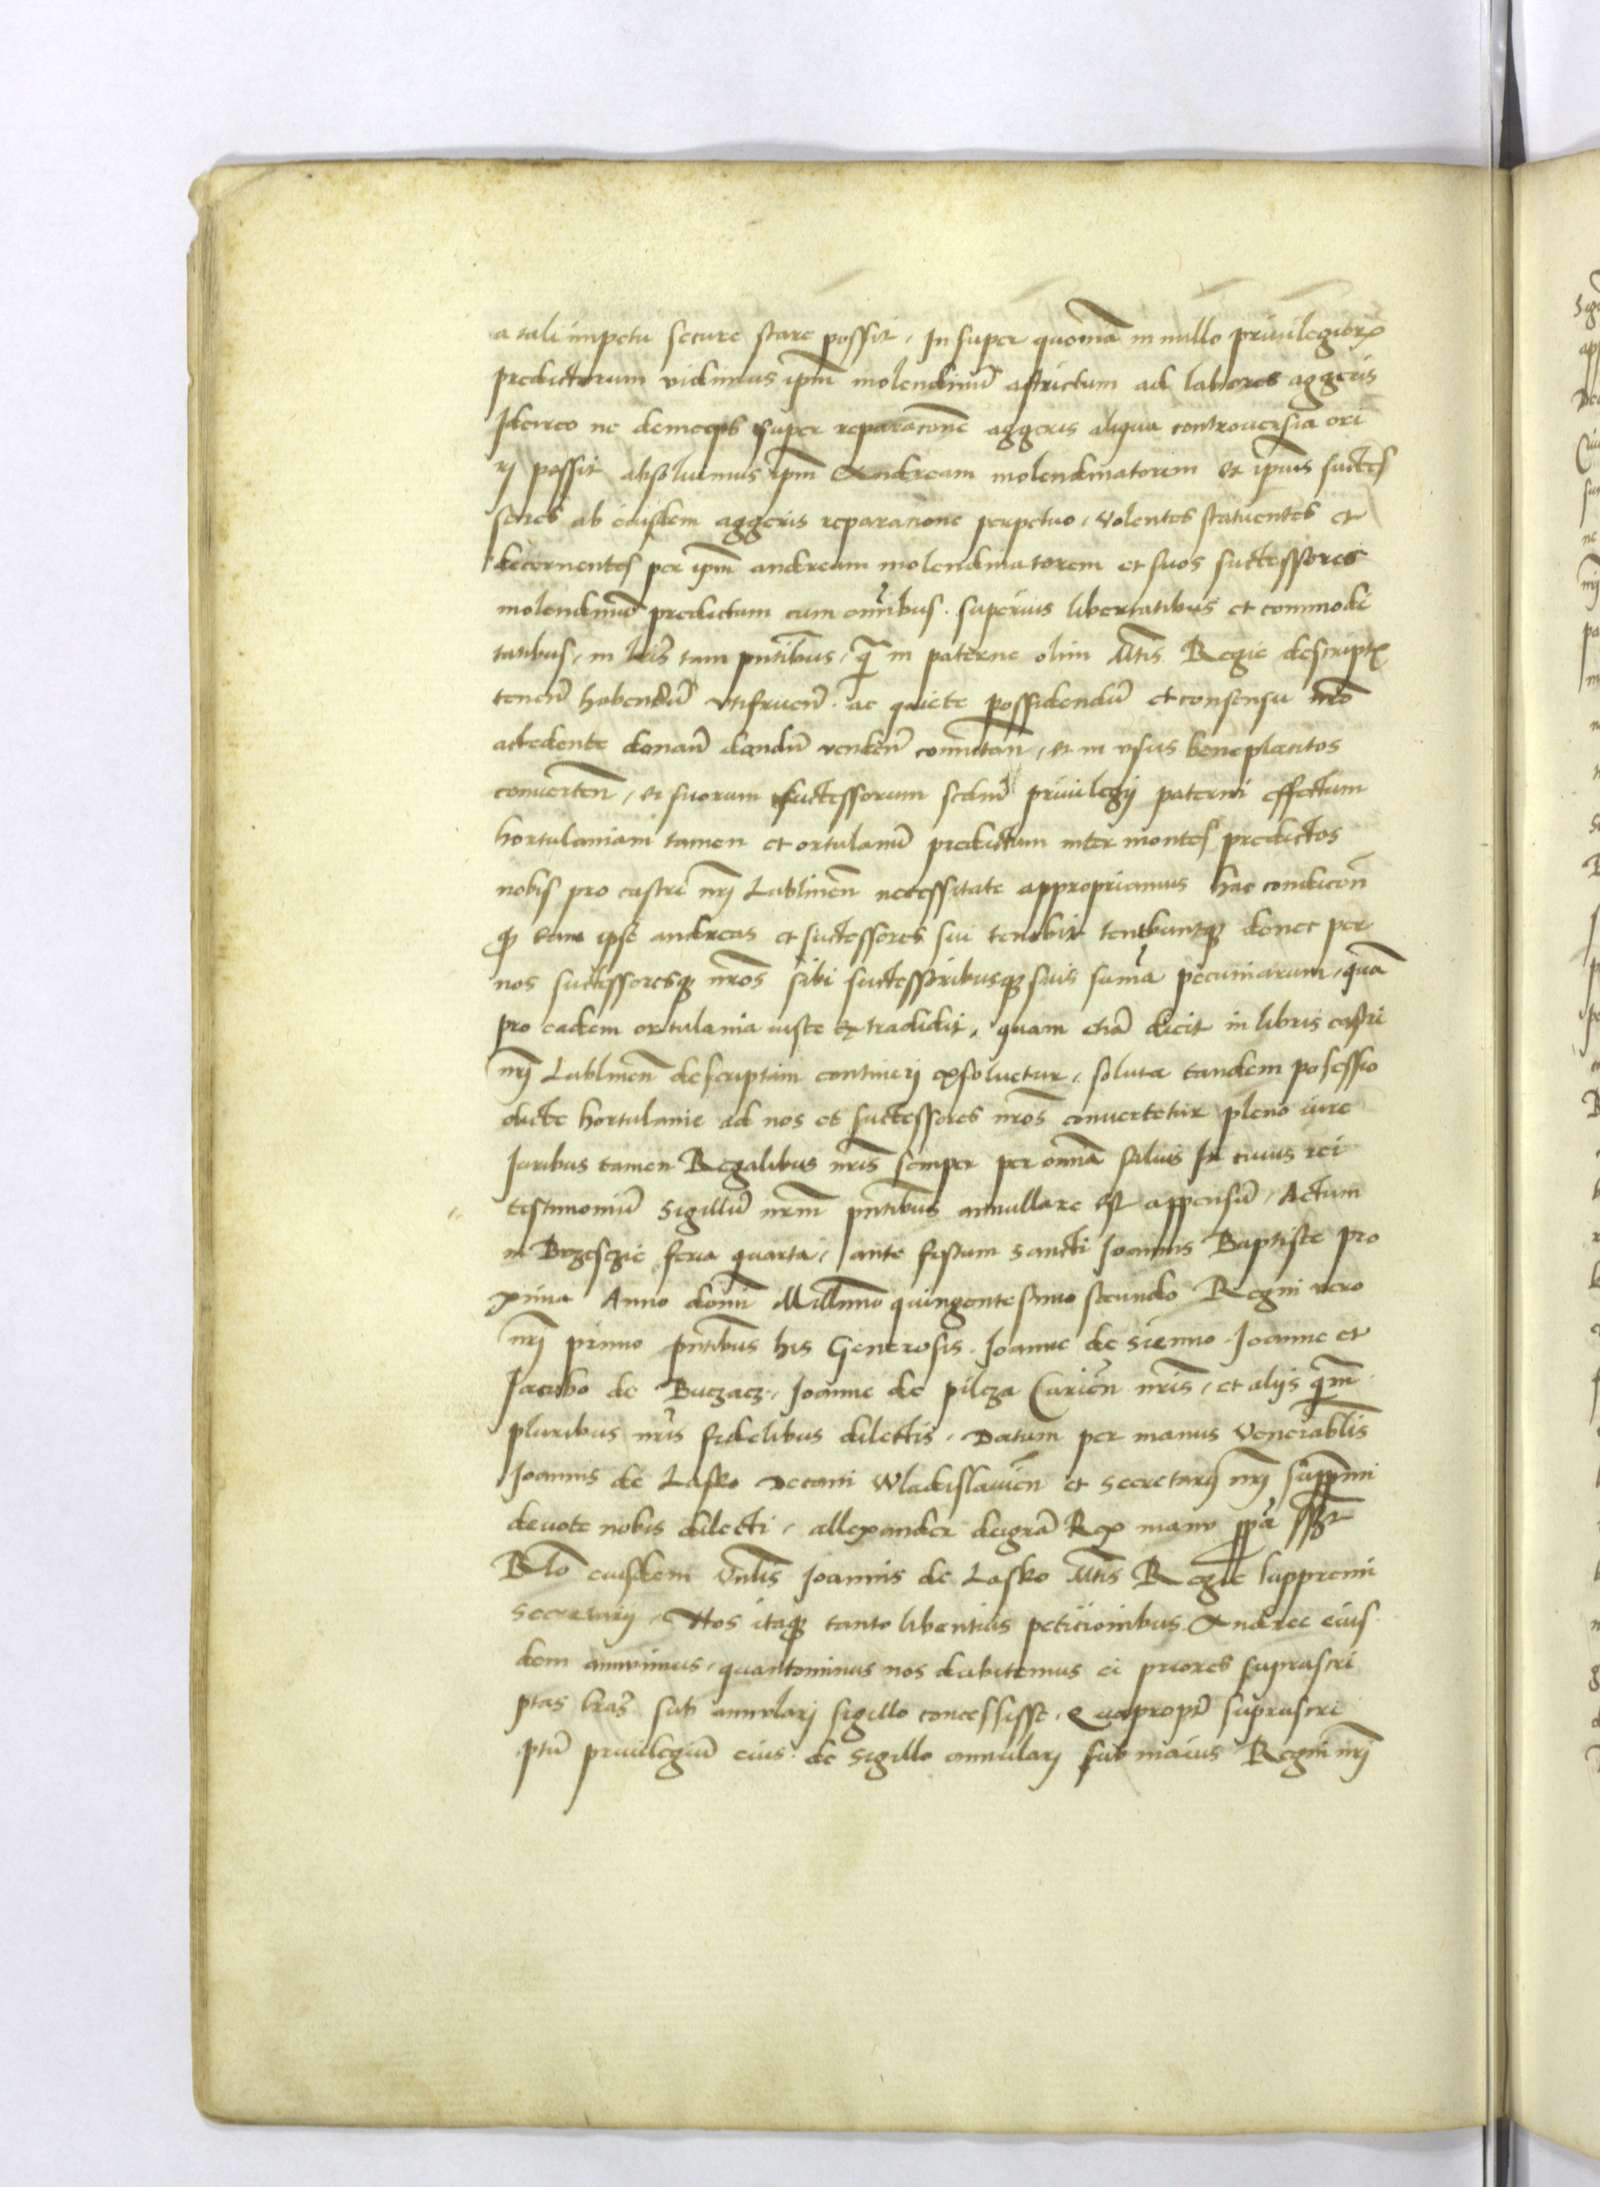 a tali impetu secure stare possit, In super quoniā in nullo priuilegiorꝫ
predictorum vidimus ipm̄ molendinū astrictum ad labores aggeris
Idcirco ne deinceps super reparacōnē aggeris aliqua controuersia ori
rj possit absoluimus ipm̄ Andream molendinatorem et ipius succes
sores ab eiusdem aggeris reparacione perpetuo, volentes statuentes et
decernentes per ipm̄ andream molendinatorem et suos successores
molendinū predictum cum om̄ibus superius libertatibus et commodi
tatibus, in lr̄is tam pn̄tibus, q̄ in paterne olim Mtis Regie descriptꝭ
tenen̄ habendū utifruen̄ ac quiete possidendū et consensu nr̄o
accedente donan̄ dandū venden̄ com̄utan̄, et in vsus beneplacitos
conuerten̄, et suorum successorum scdm̄ priuilegij paterni effectum
hortulaniam tamen et ortulanū predictum inter montes predictos
nobis pro castri nr̄j Lublinen̄ necessitate appropriamus hac condicōn̄
qꝫ eam ipse andreas et successores sui tenebit tenebuntqꝫ donec per
nos successoresqꝫ nr̄os sibi successoribusqꝫ suis sum̄a pecuniarum, quā
pro eadem ortulania iuste extradidit, quam etiā dicit in libris castri
nr̄j Lublinen̄ descriptam contineri exsoluetur, soluta tandem possessio
dicte hortulanie ad nos et successores nr̄os conuertetur pleno iure
Iuribus tamen Regalibus nr̄is semper per omnā saluis In cuius rei
testimoniū Sigillū nr̄m pn̄tibus annullare est appensū, Actum
in Brzesczie feria quarta, ante festum sancti Joannis Baptiste pro
xima Anno domī Millm̄o quingentesimo secundo Regni vero
nr̄j primo pn̄tibus his Generosis Joanne de Sienno Joanne et
Jacobo de Buczacz, Joanne de pilcza Curien̄ nr̄is, et alijs qm̄
pluribus nr̄is fidelibus dilectis, Datum per manus Venerabl̄is
Joannis de Lasko Decani Wladislauien̄ et Secretarij nr̄j supp̄mi
deuote nobis dilecti, allexander dei grā Rex manu ppā sszt
Rlō eiusdem Vn̄lis Joannis de Lasko Mtis Regie suppremi
Secretarij, Nos itaqꝫ tanto libentius peticionibus Andree eius
dem annuimus, quantominus nos dubitemus ei priores suprascri
ptas lr̄as sub annulari sigillo concessisse, Quaproptr̄ suprascri
ptū priuilegiū eius de sigillo annulari sub maius Regni nr̄j